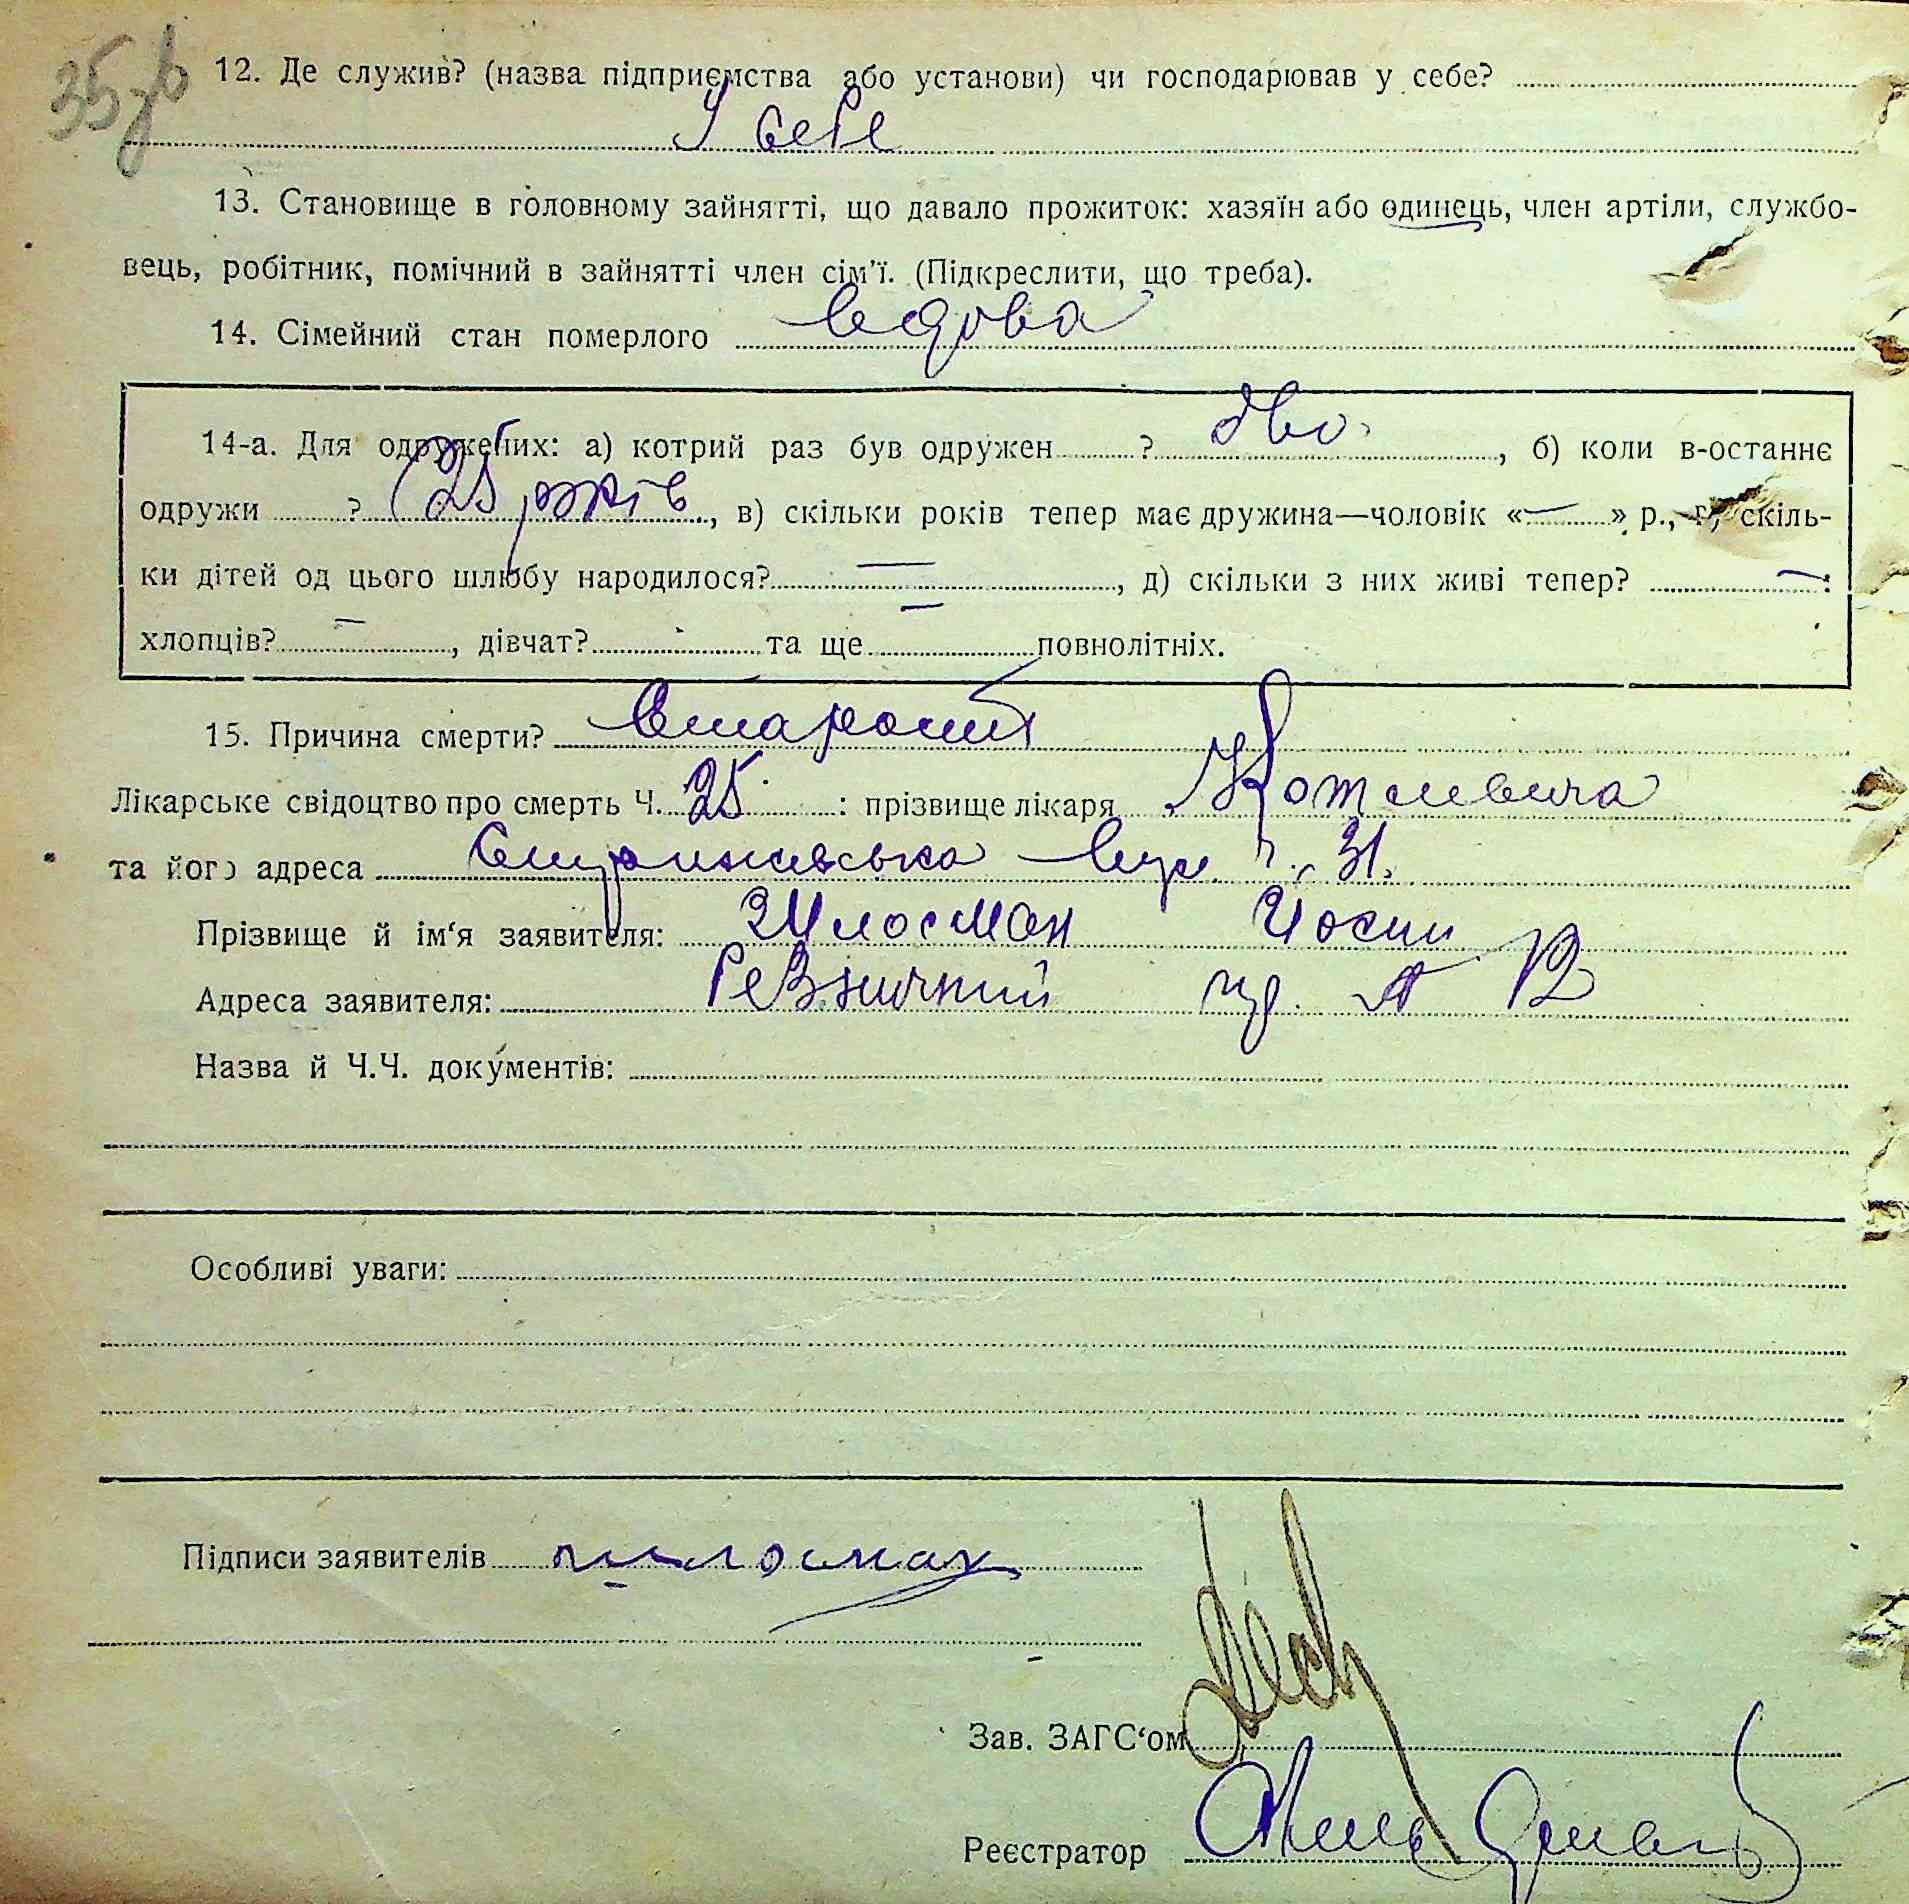 35 зв
12. Де служив? (назва підприємства або установи) чи господарював у себе?
У себе
13. Становище в головному зайнятті, що давало прожиток: хазяїн або одинець, член артіли, службо-
вець, робітник, помічний в зайнятті член сім'ї. (Підкреслити, що треба).
14. Сімейний стан померлого вдова
14-а. Для одружених: а) котрий раз був одружен ? , б) коли в-останнє
одружи ? (25 років, в) скільки років тепер має дружина—чоловік «—» р., г) скіль-
ки дітей од цього шлюбу народилося? — , д) скільки з них живі тепер? — :
хлопців? — , дівчат? та ще — повнолітніх.
15. Причина смерти? Старость
Лікарське свідоцтво про смерть Ч. 25 : прізвище лікаря
та його адреса вул ч. 31.
Прізвище й ім'я заявителя: Шлосман Йосип
Адреса заявителя: Резничний
Назва й Ч.Ч. документів:
Особливі уваги:
Підписи заявителів
Зав. ЗАГС'ом
Реєстратор